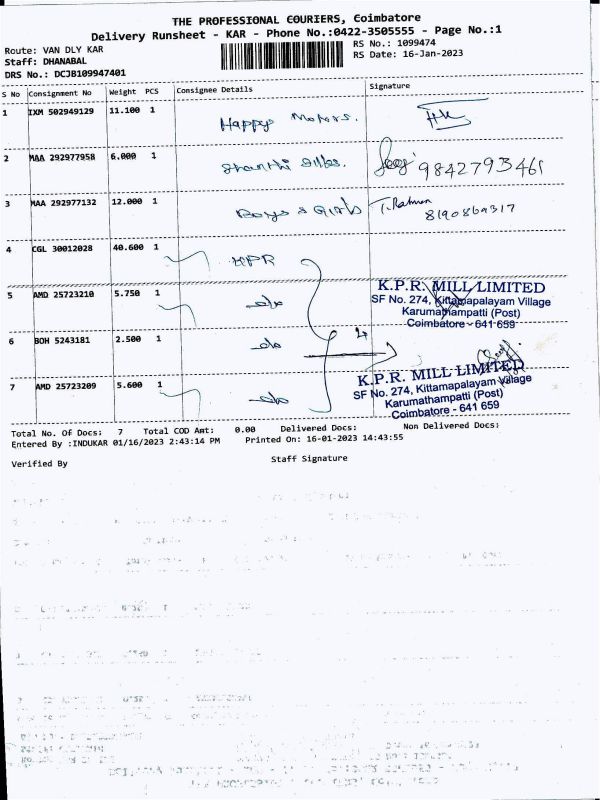 THE PROFESSIONAL COURIERS, Coimbatore
Delivery Runsheet - KAR - Phone No.:0422-3505555 - Page No.:1
Route: VAN DLY KAR
RS No.: 1099474
Staff: DHANABAL
RS Date: 16-Jan-2023
DRS No.: DCJB109947401
S No Consignment No Weight PCS Consignee Details Signature
1 IXM 502949129 11.100 1 Happy Motors.
2 MAA 292977958 6.000 1 Shanthi 9842793461
3 MAA 292977132 12.000 1 Boys & Girls T. Rahman
8190869317
4 CGL 30012028 40.600 1 KPR
K.P.R. MILL LIMITED
5 AMD 25723210 5.750 1 SF No. 274, Kittamapalayam Village
Karumathampatti (Post)
Coimbatore - 641 659
6 BOH 5243181 2.500 1 4
K.P.R. MILL LIMITED
7 AMD 25723209 5.600 1 SF No. 274, Kittamapalayam Village
Karumathampatti (Post)
Coimbatore - 641 659
Total No. Of Docs: 7 Total COD Amt: 0.00 Delivered Docs: Non Delivered Docs:
Entered By :INDUKAR 01/16/2023 2:43:14 PM Printed On: 16-01-2023 14:43:55
Verified By Staff Signature